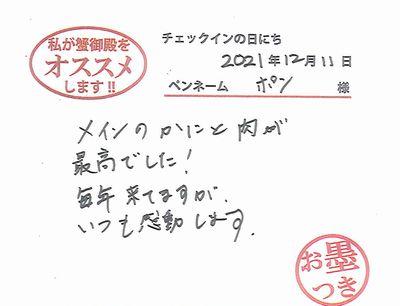 私が蟹御殿を
オススメ
します!!
チェックインの日にち
2021年12月11日
ペンネーム ポン 様
メインのかにと肉が
最高でした!
毎年来てますが、
いつも感動します。
お墨
つき